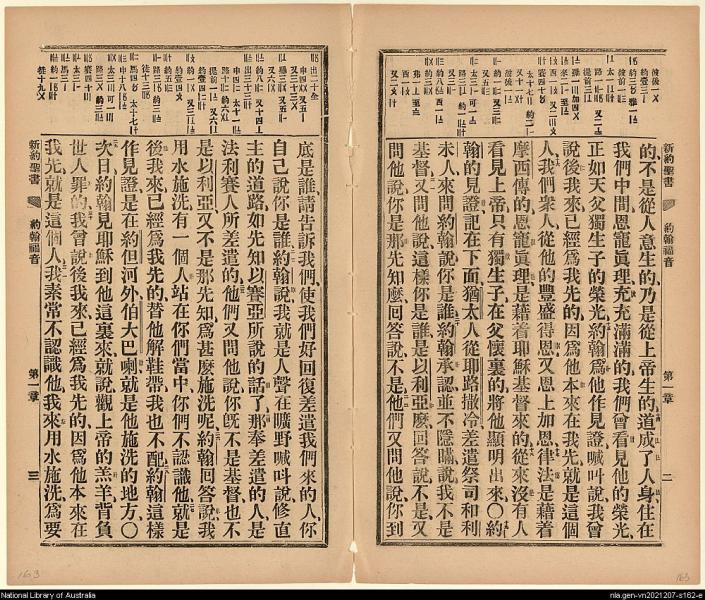 新約聖書
約翰福音
第一章
二
的不是從人意生的乃是從上帝生的道成了人身住在
我們中間恩寵眞理充充滿滿的我們曾看見他的榮光
正如天父獨生子的榮光約翰爲他作見證喊叫說我曾
說後我來已經爲我先的因爲他本來在我先就是這個
人我們衆人從他的豐盛得恩又恩上加恩律法是藉着
摩西傳的恩寵眞理是藉着耶穌基督來的從來沒有人
看見上帝只有獨生子在父懷裏的將他顯明出來〇約
翰的見證記在下面猶太人從耶路撒冷差遣祭司和利
未人來問約翰說你是誰約翰承認並不隱瞞說我不是
基督又問他說這樣你是誰是以利亞麽回答說不是又
問他說你是那先知麽回答說不是他們又問他說你到
底是誰請告訴我們使我們好回復差遣我們來的人你
自己說你是誰約翰說我就是人聲在曠野喊叫說修直
主的道路如先知以賽亞所說的話了那奉差遣的人是
法利賽人所差遣的他們又問他說你旣不是基督也不
是以利亞又不是那先知爲甚麽施洗呢約翰回答說我
用水施洗有一個人站在你們當中你們不認識他就是
後我來已經爲我先的替他解鞋帶我也不配約翰這樣
作見證是在約但河外伯大巴喇就是他施洗的地方〇
次日約翰見耶穌到他這裏來就說觀上帝的羔羊背負
世人罪的我曾說後我來已經爲我先的因爲他本來在
我先就是這個人我素常不認識他我來用水施洗爲要
新約聖書
約翰福音
第一章
三
163
163
National Library of Australia
nla.gen-vn2021207-s162-e